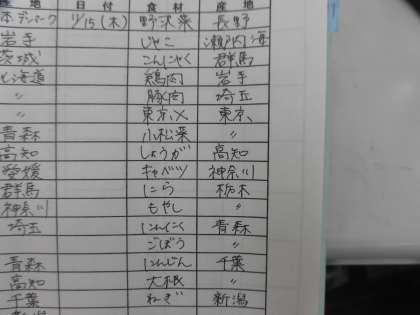 産 地 日 付 食 材 産 地
デンマーク 11/15(木) 野沢菜 長野
岩手 じゃこ 瀬戸内海
茨城 こんにゃく 群馬
北海道 鶏肉 岩手
〃 豚肉 埼玉
東京X 東京
青森 小松菜 〃
高知 しょうが 高知
愛媛 キャベツ 神奈川
群馬 にら 栃木
神奈川 もやし 〃
埼玉 にんにく 青森
ごぼう 〃
青森 にんじん 千葉
高知 大根 〃
千葉 ねぎ 新潟